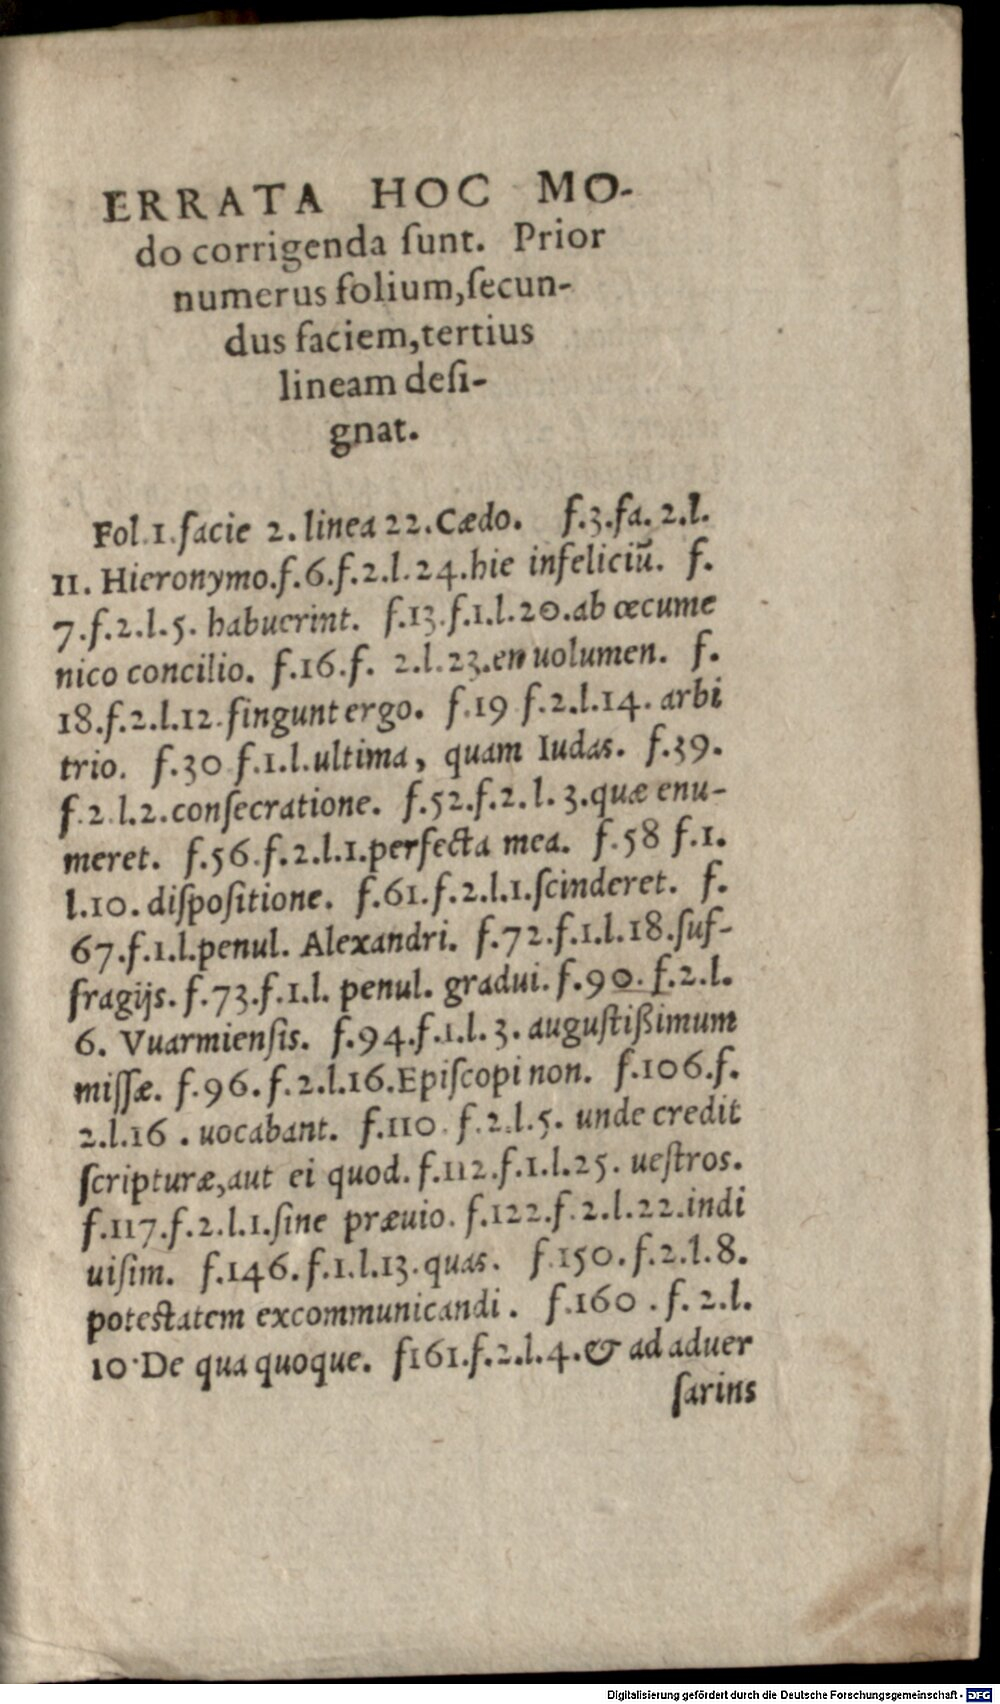 ERRATA HOC MO-
do corrigenda ſunt. Prior
numerus folium,ſecun-
dus faciem,tertius
lineam deſi-
gnat.
Fol.1.facie 2. linea 22.Cædo. f.3.fa.2.l.
11. Hieronymo.f.6.f.2.l.24.hie infeliciũ. f.
7.f.2.l.5. habuerint. f.13.f.1.l.20.ab œcume
nico concilio. f.16.f. 2.l.23.en uolumen. f.
18.f.2.l.12.fingunt ergo. f.19 f.2.l.14. arbi
trio. f.30 f.1.l.ultima, quam Iudas. f.39.
f.2.l.2.conſecratione. f.52.f.2.l.3.quæ enu-
meret. f.56.f.2.l.1.perfecta mea. f.58 f.1.
l.10.diſpoſitione. f.61.f.2.l.1.ſcinderet. f.
67.f.1.l.penul. Alexandri. f.72.f.1.l.18.ſuf-
fragijs.f.73.f.1.l. penul. gradui.f.90.f.2.l.
6. Vuarmienſis. f.94.f.1.l.3. auguſtißimum
miſſæ. f.96.f.2.l.16.Epiſcopi non. f.106.f.
2.l.16 . uocabant. f.110.f.2.l.5. unde credit
ſcripturæ,aut ei quod.f.112.f.1.l.25. ueſtros.
f.117.f.2.l.1.ſine præuio. f.122.f.2.l.22.indi
uiſim. f.146.f.1.l.13.quas. f.150.f.2.l.8.
poteſtatem excommunicandi. f.160.f.2.l.
10·De qua quoque. f161.f.2.l.4.& ad aduer
ſarins
Digitalisierung gefördert durch die Deutsche Forschungsgemeinschaft - DFG